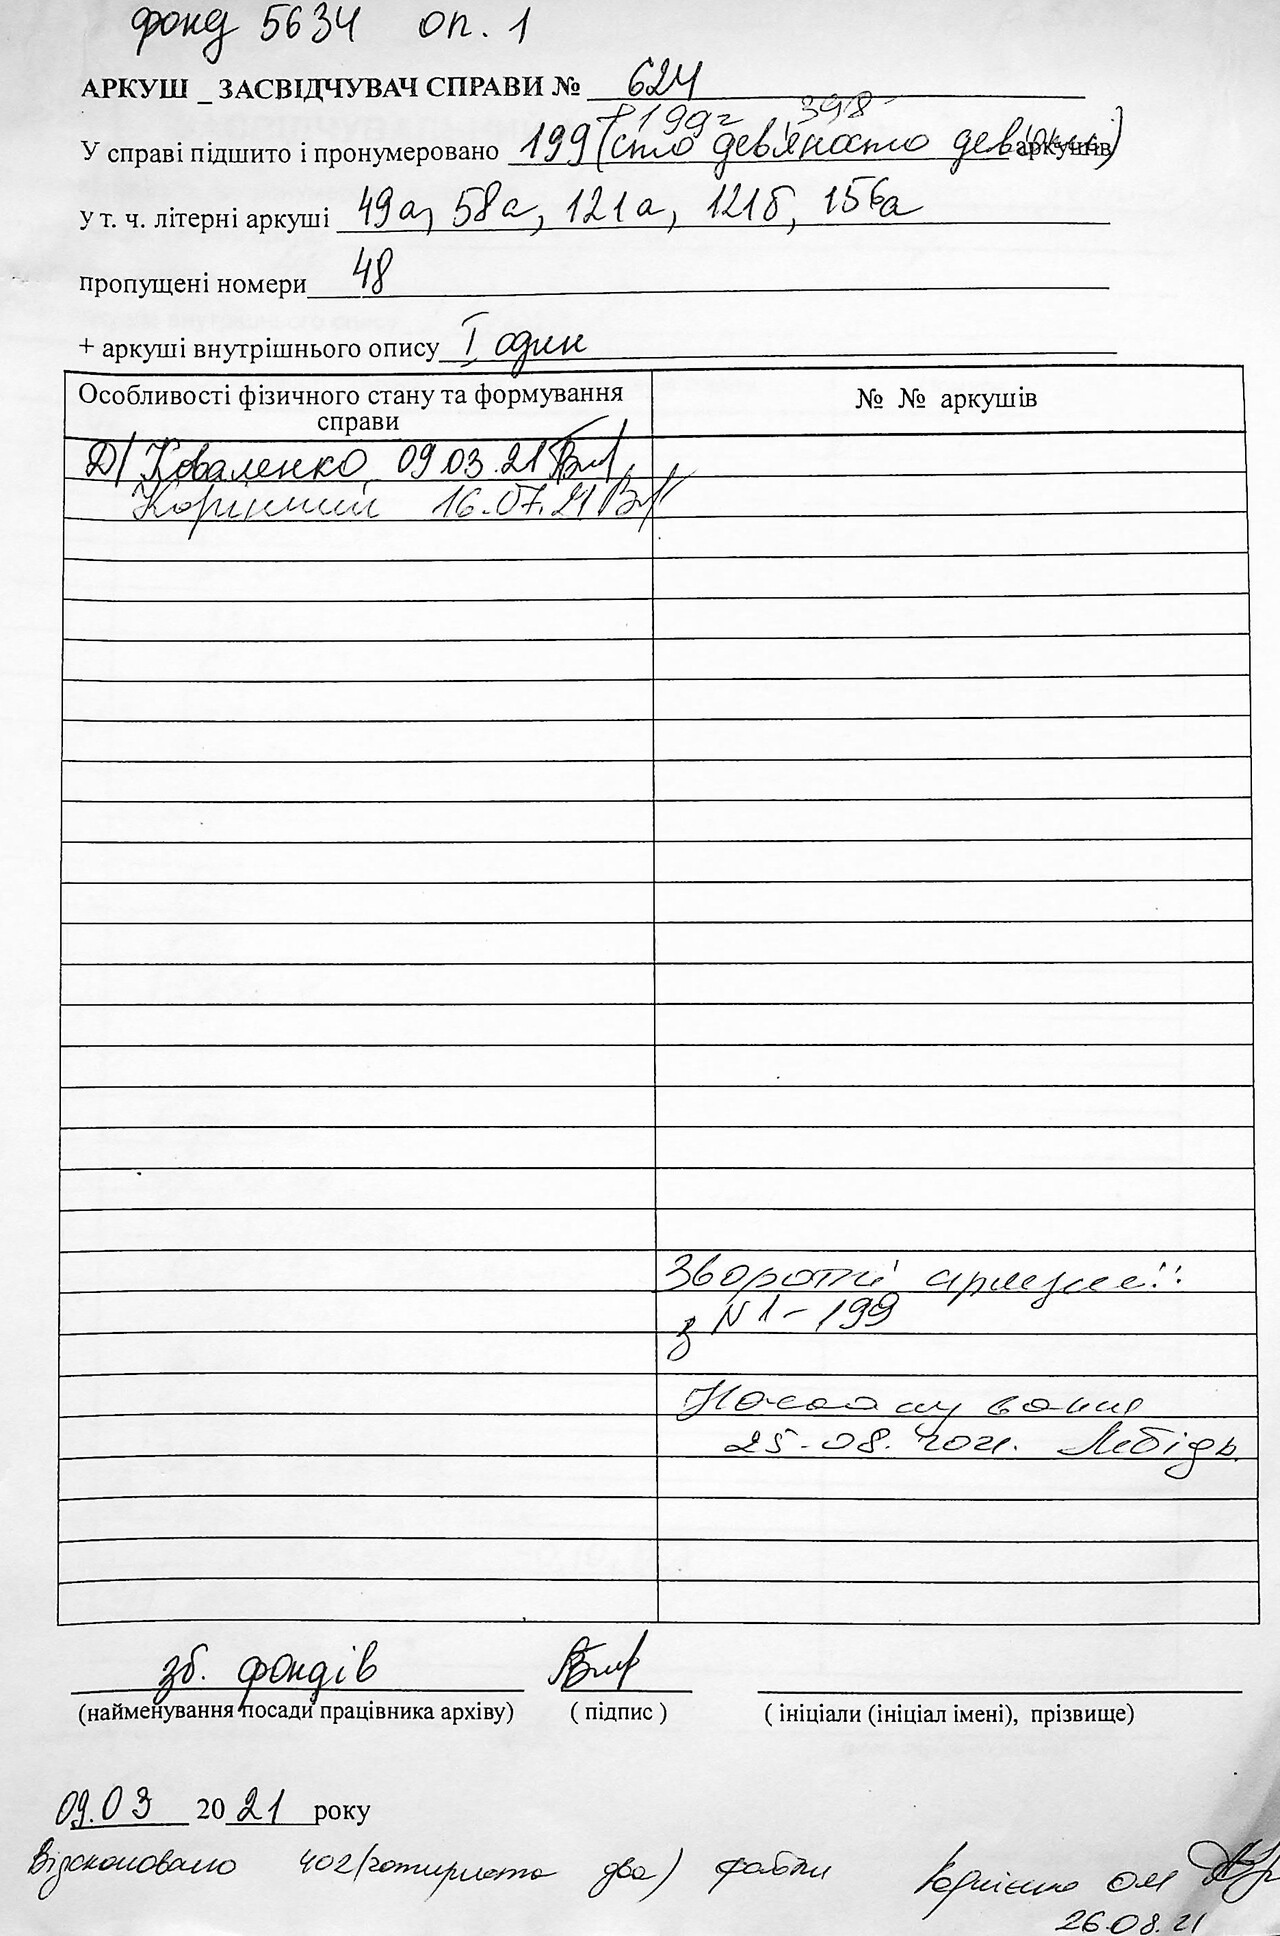 фонд 5634 оп. 1
АРКУШ _ ЗАСВІДЧУВАЧ СПРАВИ № 624
+199г 398
У справі підшито і пронумеровано 199 (сто дев'яносто дев'ять) аркушів
у т. ч. літерні аркуші 49а, 58а, 121а, 121б, 156а
пропущені номери 48
+ аркуші внутрішнього опису I один
Особливості фізичного стану та формування справи
№ № аркушів
Д/ Коваленко 09.03.21
16.07.21
Зворотні аркуші:
з N 1 – 199
25.08.2021. Лебідь
зб. фондів
(найменування посади працівника архіву) ( підпис ) ( ініціали (ініціал імені), прізвище)
09.03 2021 року
Відскановано 402 (чотириста два) файли Корнієнко ОМ
26.08.21